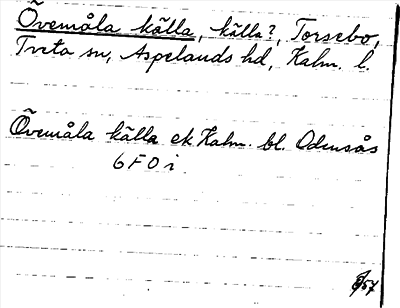 Övemåla källa, källa?, Torsebo,
Tveta sn, Aspelands hd, Kalm. l.
Övemåla källa ek Kalm. bl. Odensås
6 F 0 i
57